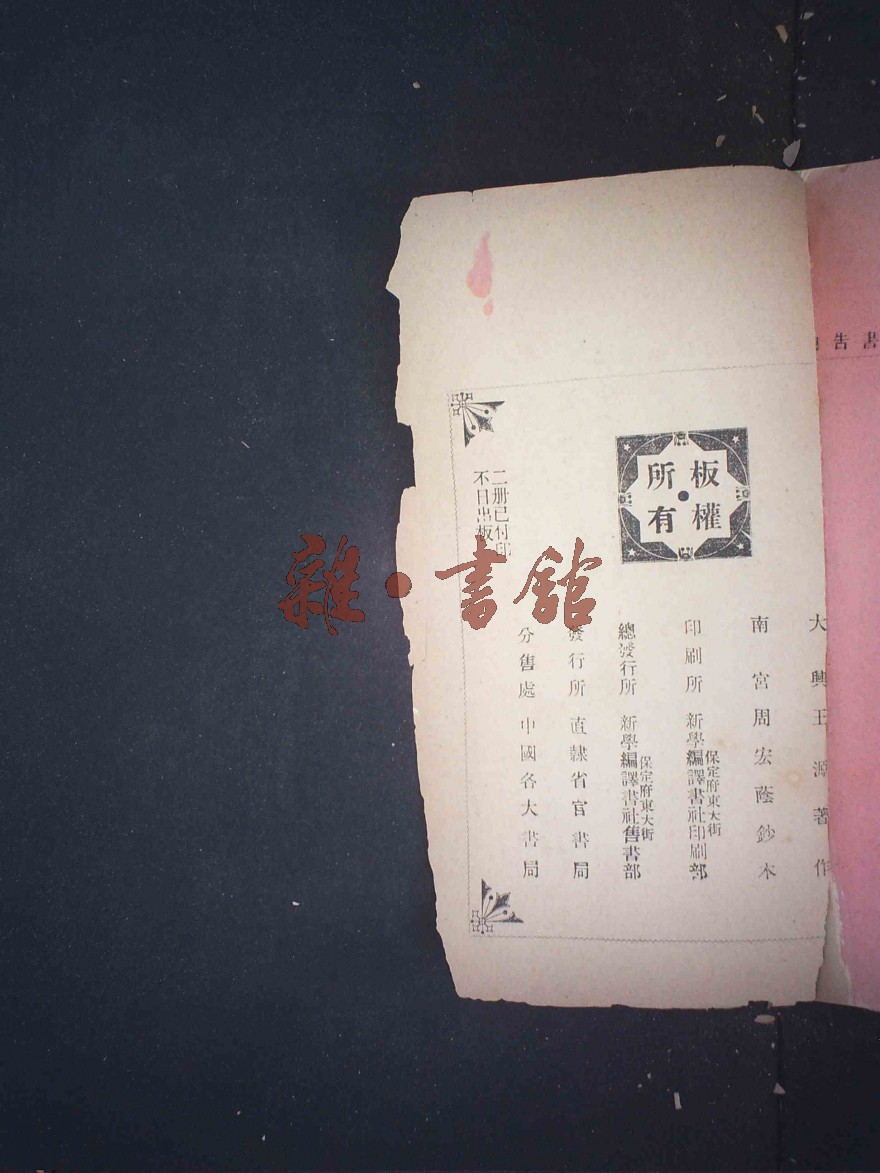 告書
大興王源著作
南宮周宏蔭鈔本
印刷所 保定府東大街 新學編譯書社印刷部
總發行所 保定府東大街 新學編譯書社售書部
發行所 直隸省官書局
分售處 中國各大書局
板權所有
二册已付印
不日出板
雜·書舘